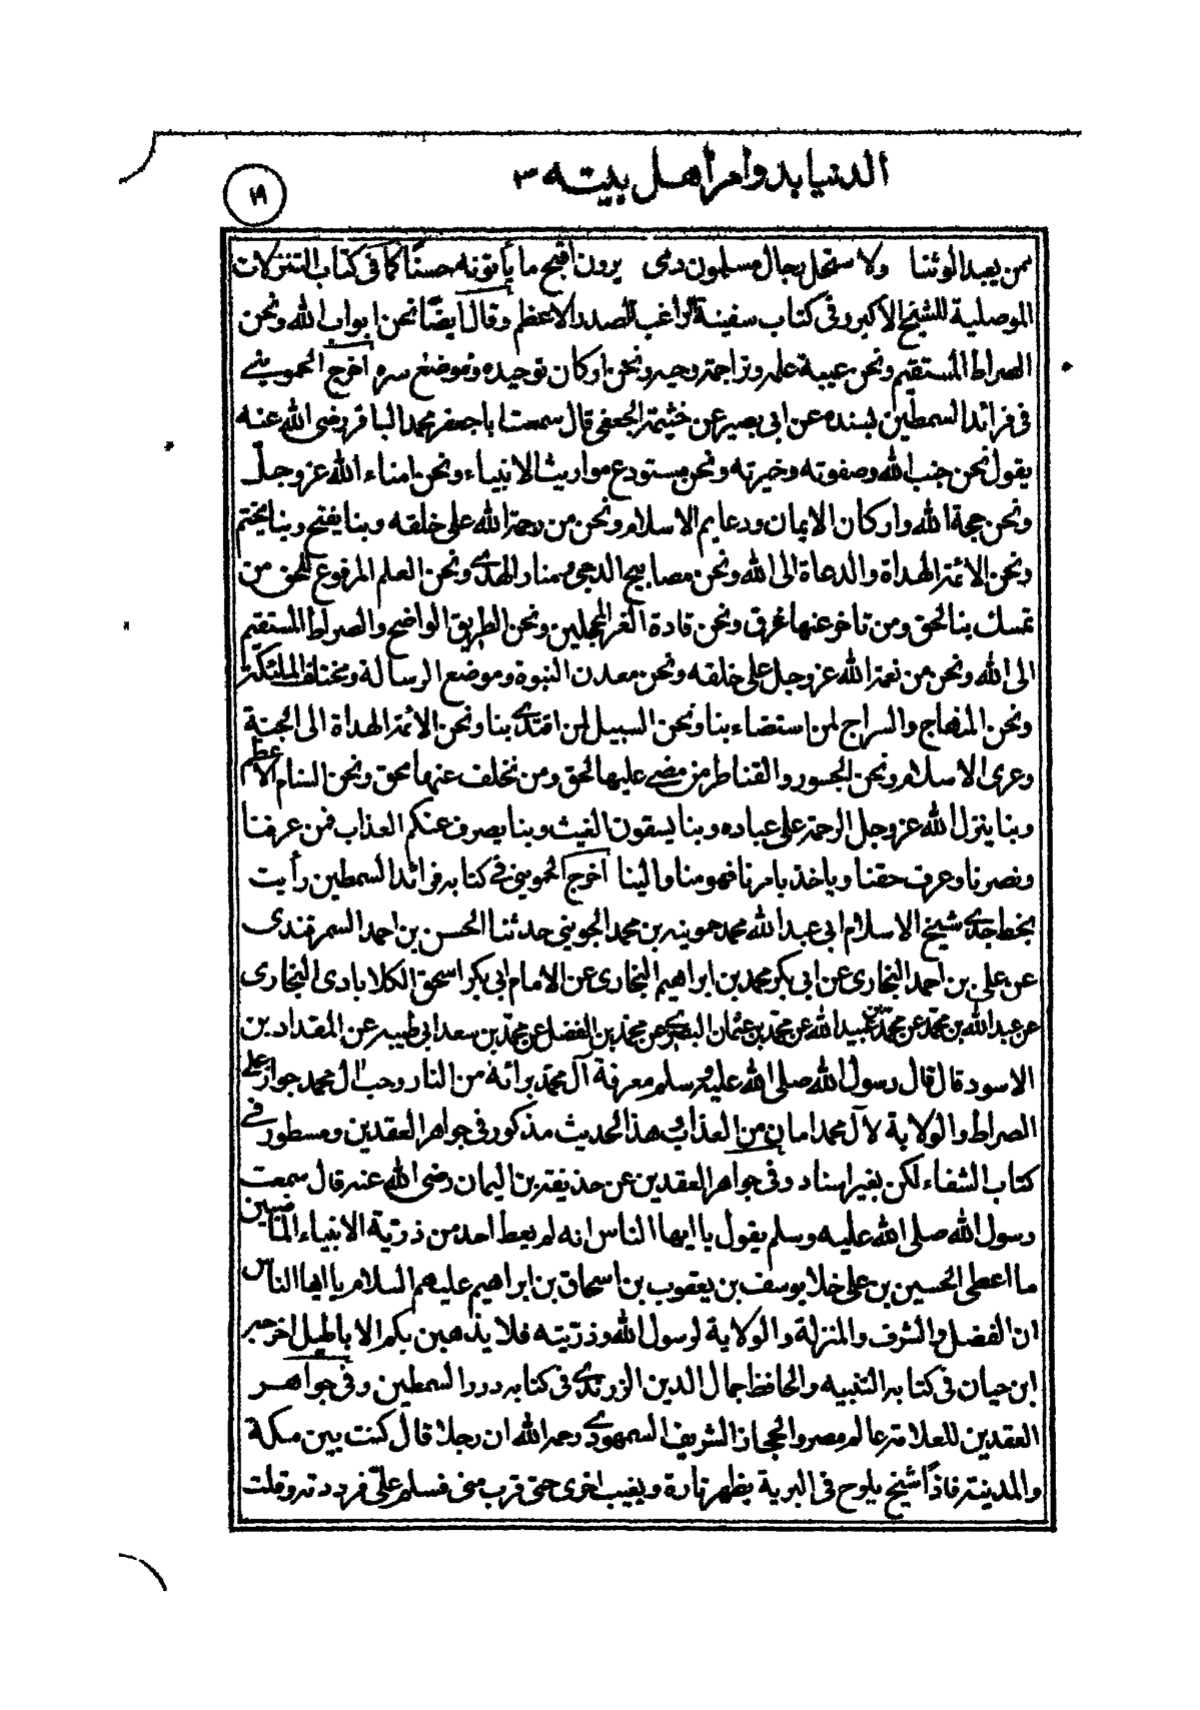 الدنيا بدوام اهل بيته ٣
١٩
ممن يعبد الوثنا ولاستحل رجال مسلمون دمى يرون اقبح ما يأتونه حسنًا كما فى كتاب التنزلات
الموصلية للشيخ الاكبر وفى كتاب سفينة الراغب للصدر الاعظم وقال ايضًا نحن ابواب الله ونحن
الصراط المستقيم ونحن عيبة علمه وتراجمة وحيه ونحن اركان توحيده وموضع سره اخرج الحموينى
فى فرائد السمطين بسنده عن ابى بصير عن خثيمة الجعفى قال سمعت ابا جعفر محمد الباقر رضى الله عنه
يقول نحن جنب الله وصفوته وخيرته ونحن مستودع مواريث الانبياء ونحن امناء الله عز وجل
ونحن حجة الله واركان الايمان ودعايم الاسلام ونحن من رحمة الله على خلقه وبنا يفتح وبنا يختم
ونحن الائمة الهداة والدعاة الى الله ونحن مصابيح الدجى ومنار الهدى ونحن العلم المرفوع للحق من
تمسك بنا لحق ومن تاخر عنها غرق ونحن قادة الغر المحجلين ونحن الطريق الواضح والصراط المستقيم
الى الله ونحن من نعمة الله عز وجل على خلقه ونحن معدن النبوة وموضع الرسالة ومختلف الملئكة
ونحن المنهاج والسراج لمن استضاء بنا ونحن السبيل لمن اقتدى بنا ونحن الائمة الهداة الى الجنة
وعرى الاسلام ونحن الجسور والقناطر من مضى عليها لحق ومن تخلف عنها محق ونحن السنام الاعظم
وبنا ينزل الله عز وجل الرحمة على عباده وبنا يسقون الغيث وبنا يصرف عنكم العذاب فمن عرفنا
ونصرنا وعرف حقنا وياخذ بامرنا فهو منا والينا اخرج الحموينى فى كتابه فرائد السمطين رأيت
بخط جدى شيخ الاسلام ابى عبد الله محمد حموينه بن محمد الجوينى حدثنا الحسن بن احمد السمرقندى
عن على بن احمد البخارى عن ابى بكر محمد بن ابراهيم البخارى عن الامام ابى بكر اسحق الكلابادى البخارى
عن عبد الله بن محمد عن محمد بن عبيد الله عن محمد بن عثمان البصرى عن محمد بن الفضل عن محمد بن سعد ابى طيبه عن المقداد بن
الاسود قال قال رسول الله صلى الله عليه وسلم معرفة آل محمد برائة من النار وحب ال محمد جواز على
الصراط والولاية لآل محمد امان من العذاب وهذا الحديث مذكور فى جواهر العقدين ومسطور فى
كتاب الشفاء لكن بغير اسناد وفى جواهر العقدين عن حذيفة بن اليمان رضى الله عنه قال سمعت
رسول الله صلى الله عليه وسلم يقول يا ايها الناس انه لم يعط احد من ذرية الانبياء الماضيين
ما اعطى الحسين بن على خلا يوسف بن يعقوب بن اسحاق بن ابراهيم عليهم السلام يا ايها الناس
ان الفضل والشرف والمنزلة والولاية لرسول الله وذريته فلا يذهبن بكم الاباطيل اخرجه
ابن حيان فى كتابه التنبيه والحافظ جمال الدين الزرندى فى كتابه درر السمطين وفى جواهر
العقدين للعلامة عالم مصر والحجاز الشريف السمهودى رحمه الله ان رجلا قال كنت بين مكة
والمدينة فاذًا شيخ يلوح فى البرية يظهر تارة ويغيب اخرى حتى قرب منى فسلم علىّ فرددته وقلت